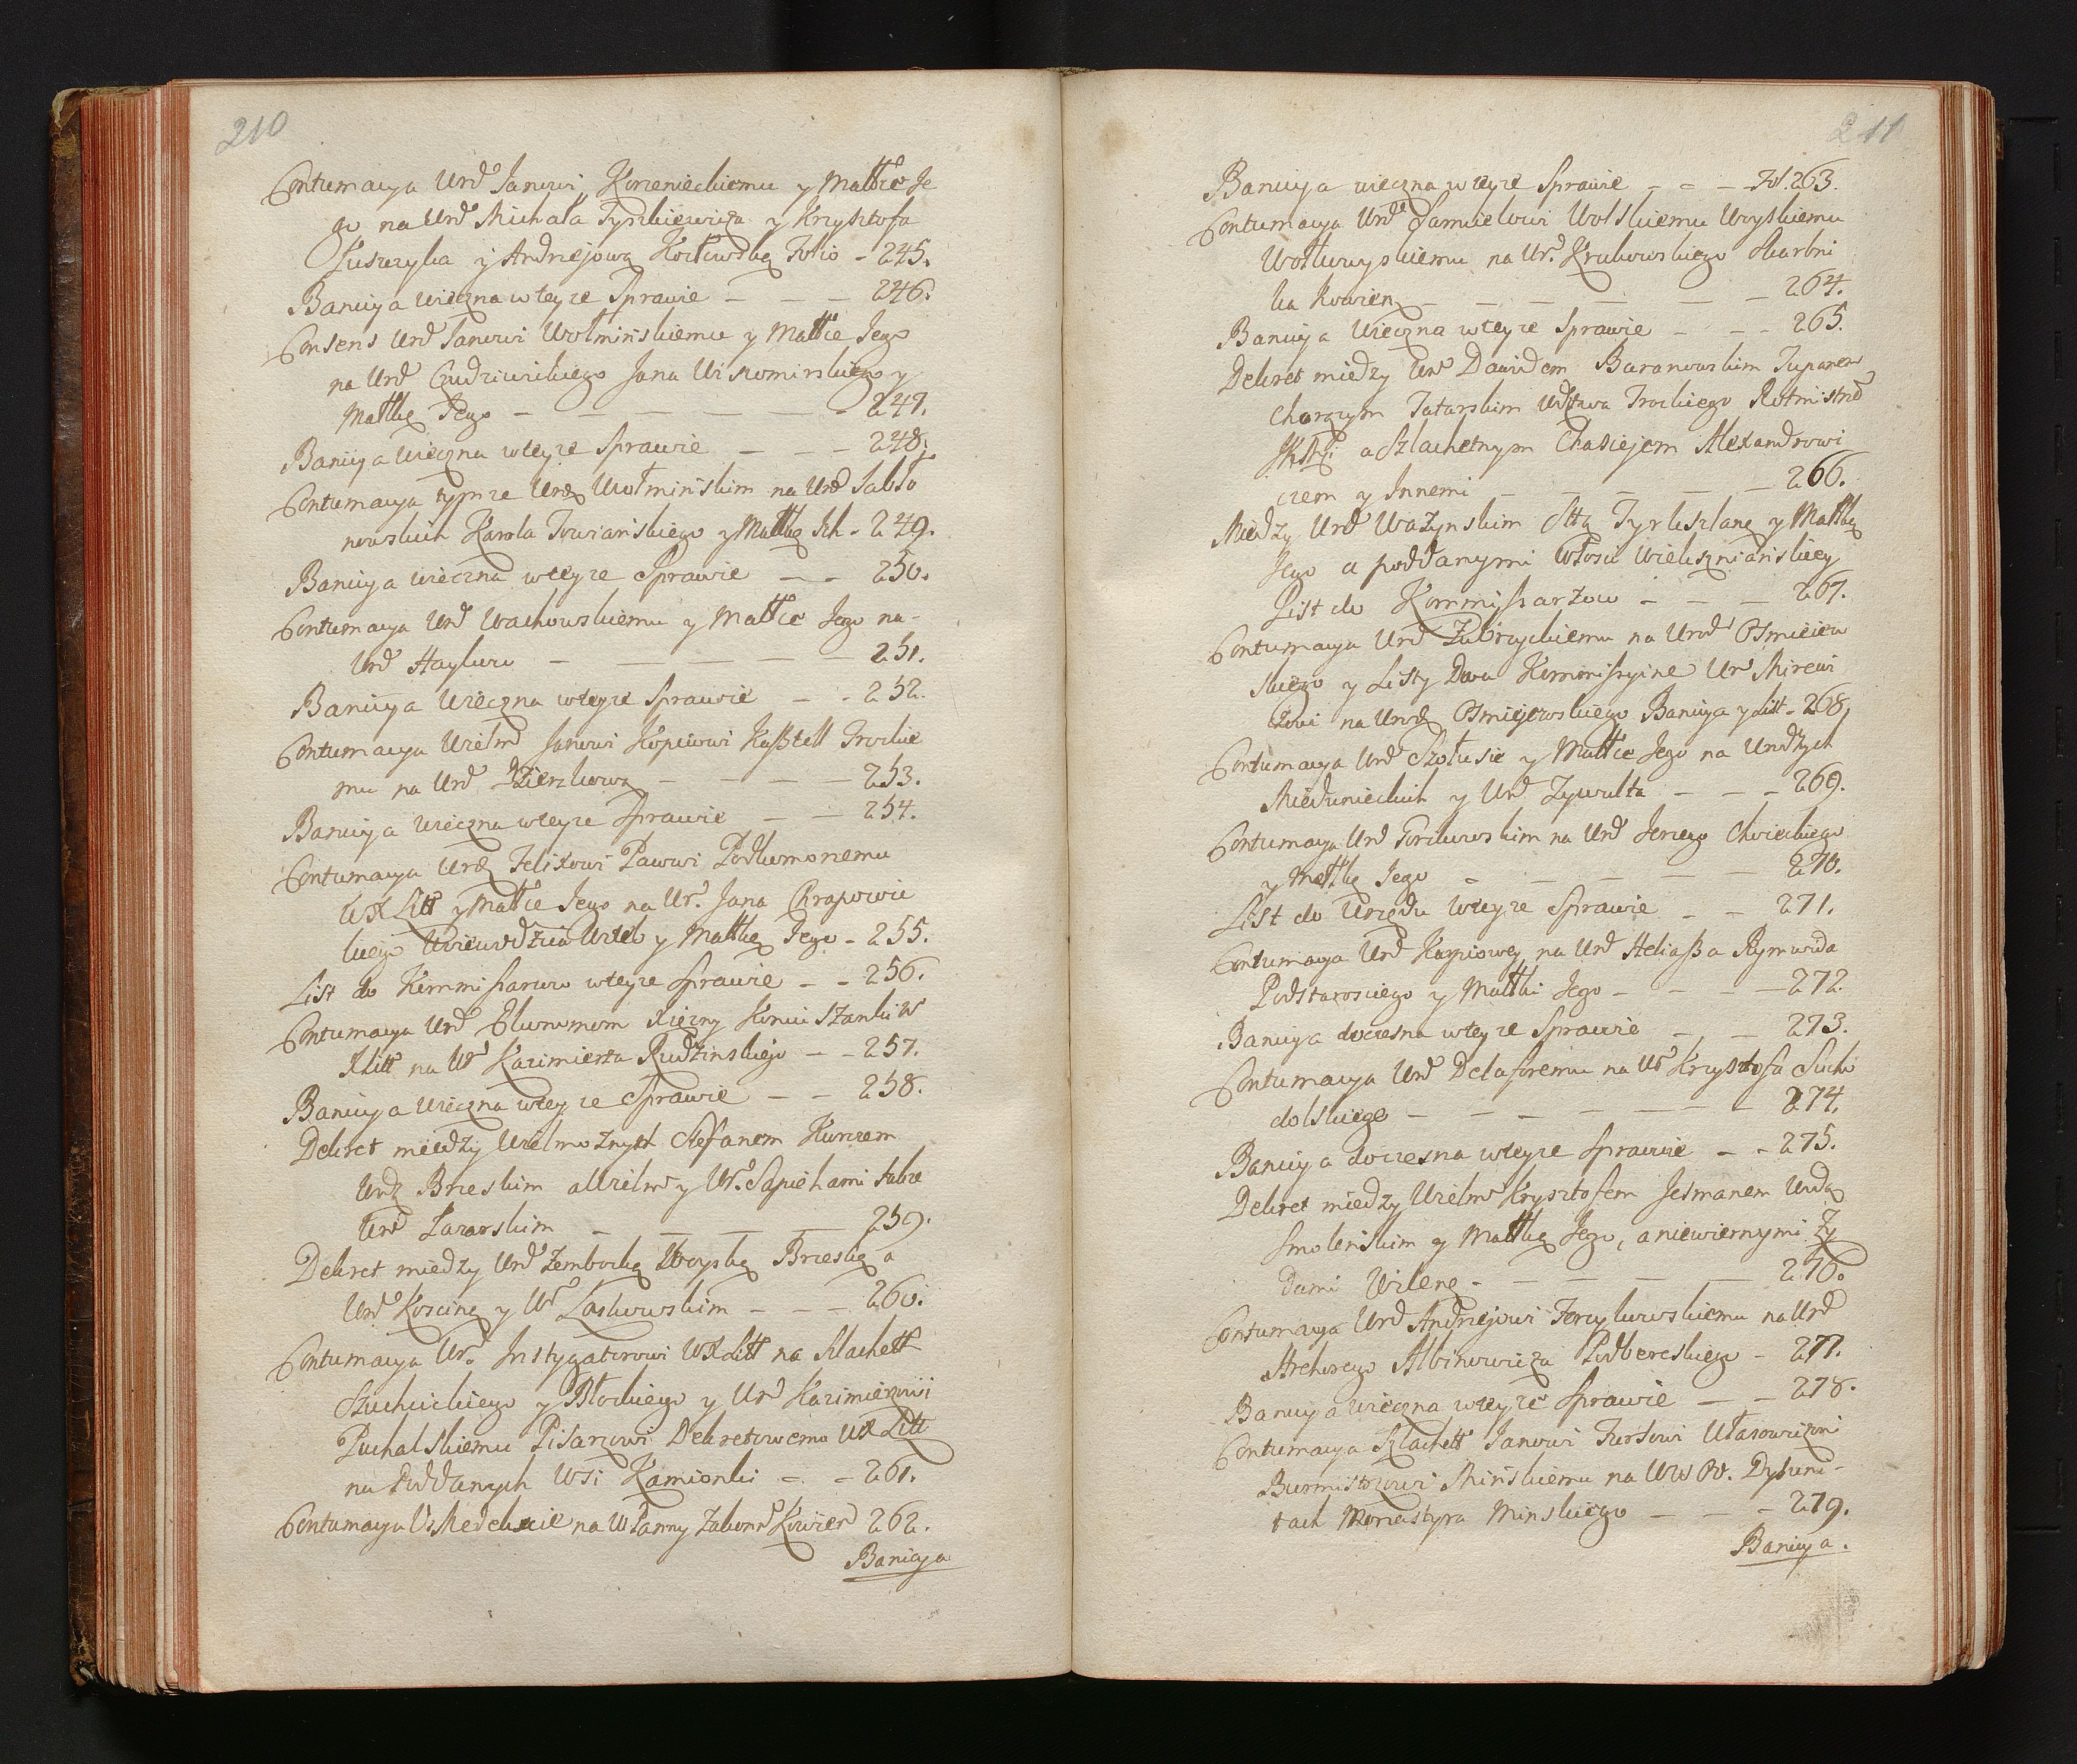 210
Contumacya Urd Janowi Korzenieckiemu y Małłce Je
go na Urd Michała Tyszkiewicza y Krzysztofa
y Andrzejową Kociewską Folio - 245.
Banicya wieczna w teyze Sprawie - - - 246.
Consens Urd Janowi Wołminskiemu y Małłce Jego
na Urd Jana Wiszomirskiego y
Małłkę Jego - - - - - 247.
Banicya wieczna w teyze Sprawie - - - 248.
Contumacya tymze Urdz Wołminskim na Urd Jabło
nowskich Karola Towianskiego y Małłkę - 249.
Banicya wieczna w teyze Sprawie - - 250.
Contumacya Urd Wachowskiemu y Małłce Jego na-
Urd - - - - - 251.
Banicya wieczna w teyze Sprawie - - 252.
Contumacya Wielm Janowi Kopciowi Kasztell Trockie
mu na Urd - - - - 253.
Banicya wieczna w teyze Sprawie - - 254.
Contumacya Urdz Felixowi Pacowi Podkomorzemu
WXLitt y Małłce Jego na Ur. Jana Chrapowic
kiego y Małłkę Jego - 255.
List do Kommissarzow w teyze Sprawie - - 256.
Contumacya Urd Ekonomom
XLitt na Ur Kazimierza Rudzinskiego - - 257.
Banicya wieczna w teyze Sprawie - - 258.
Dekret miedzy Wielmoznych Stefanem Kurczem
Wdz Brzeskim a Wielm y Ur. Sapiehami
Urd - - - - 259.
Dekret miedzy Urd Zembocką Woyską Brzeską a
Urd y Ur Laskowskim - - - 260.
Contumacya Ur. Instygatorowi WXLitt na Szlachett
y Błockiego y Urd Kazimierzowi
Puchalskiemu Pisarzowi Dekretowemu WXLitt
na Poddanych Wsi Kamionki - - 261.
Contumacya Ur na WPanny Zakonn Kowien 262.
Banicya
211
Banicya wieczna w teyze Sprawie - - - Fol. 263.
Contumacya Urd Samuelowi Wolskiemu Woyskiemu
Wołkowyskiemu na Ur. Krukowskiego Skarbni
ka Kowien - - - - - - 264.
Banicya wieczna w teyze Sprawie - - - 265.
Dekret miedzy Urd Dawidem Baranowskim
Chorązym Tatarskim Wdztwa Trockiego Rotmistrz
JKMsci a Szlachetnym Chasiejem Alexandrowi
czem y Innemi - - - - - 266.
Miedzy Urd Wazynskim Sttą Tyrkszlang y Małłką
Jego a poddanymi Włosci
List do Kommissarzow - - - 267.
Contumacya Urd Zabrzyckiemu na Urod Osmieiew
skiego y Listy Dwa Kommissyine Ur
na Urod Osmiejewskiego Banicya y List - 268.
Contumacya Urd Szołusie y Małłce Jego na Urodzych
Miedunieckich y Urd - - - 269.
Contumacya Urd na Urd Jerzego Chwieckiego
y Małłkę Jego - - - - - 270.
List do Urzędu w teyze Sprawie - - 271.
Contumacya Urd Kopciowey na Urd Heliassa Rymwida
Podstarosciego y Małłki Jego - - - 272.
Banicya doczesna w teyze Sprawie - - 273.
Contumacya Urd na Ur Krzysztofa Sucho
dolskiego - - - - - - - 274.
Banicya doczesna w teyze Sprawie - - 275.
Dekret miedzy Wielm Krzysztofem Jesmanem
Smolenskim y Małłką Jego, a niewiernymi Zy
dami Wilenę - - - - - 276.
Contumacya Urd Andrzejowi na Urd
Albinowicza Podbereskiego - 277.
Banicya wieczna w teyze Sprawie - - 278.
Contumacya Szlachett Janowi Fursowi Własowiczowi
Burmistrzowi Minskiemu na WW OO. Dysuni-
tach Monastyra Minskiego - - - 279.
Banicya.